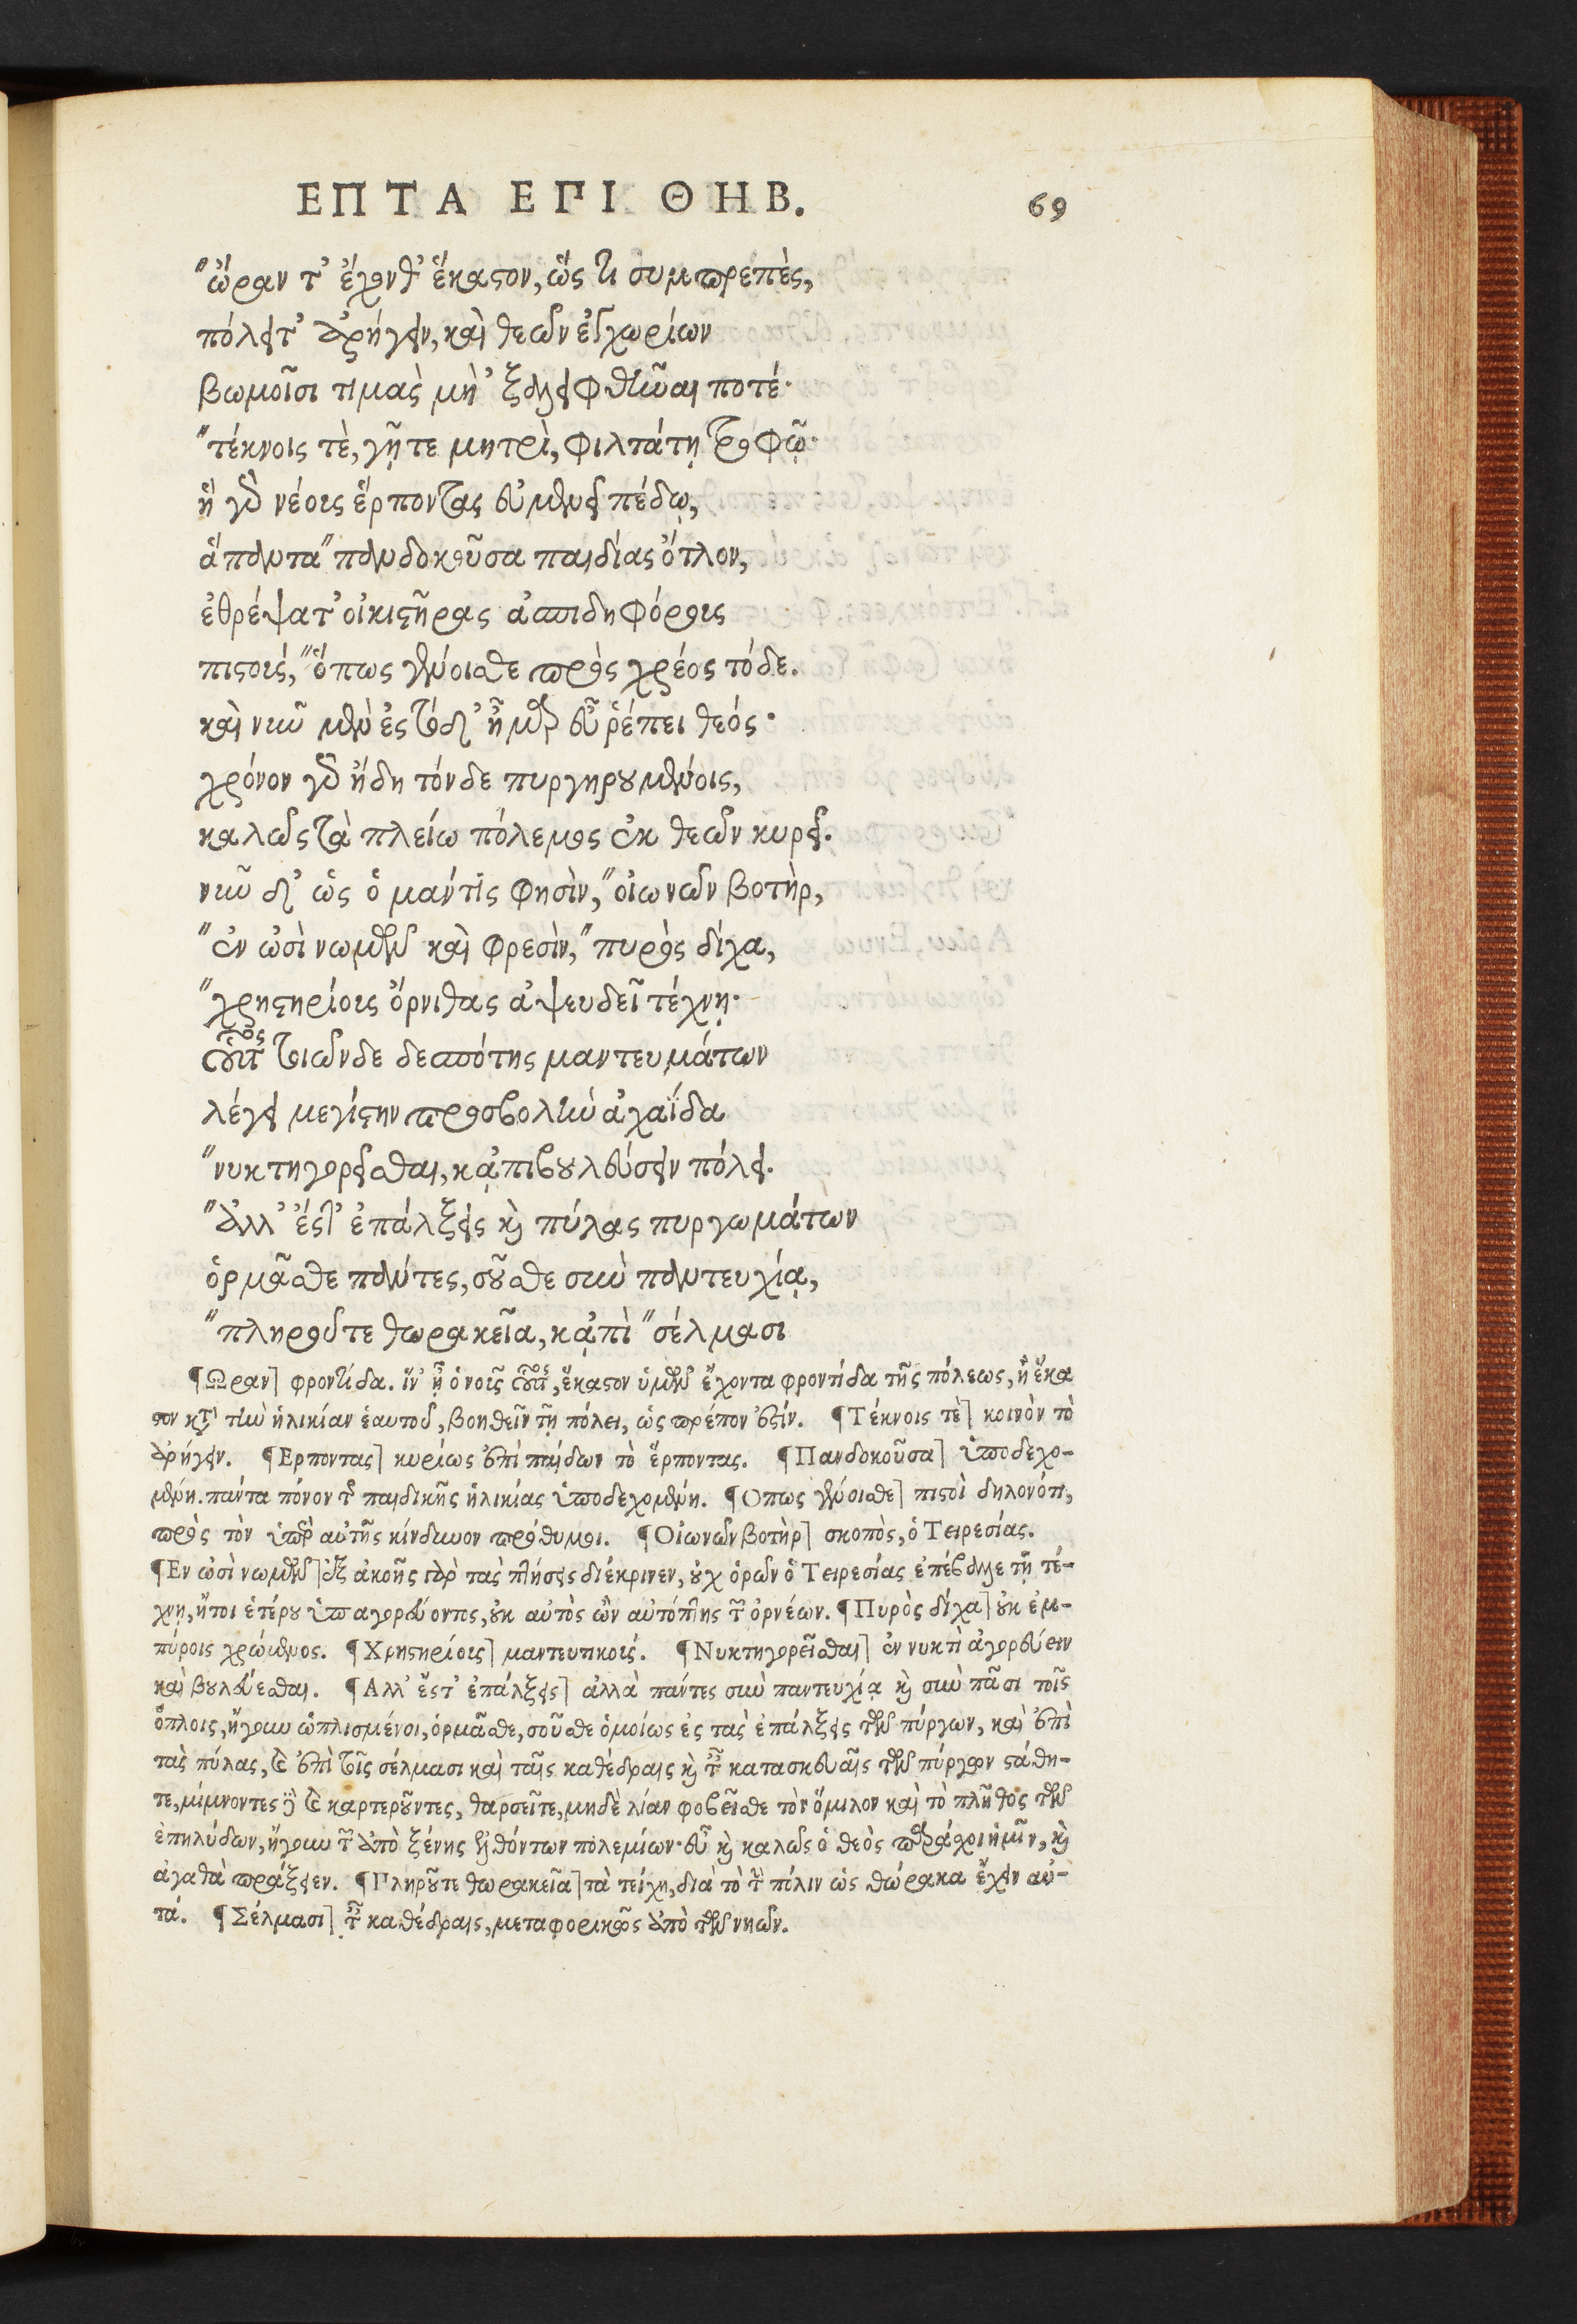 ΕΠΤΑ ΕΠΙ ΘΗΒ. 69
"ὥραν τ' ἔχονθ' ἕκαστον, ὥς τι συμπρεπὲς,
πόλει τ' ἀρήγειν, καὶ θεῶν ἐγχωρίων
βωμοῖσι τιμὰς μὴ 'ξαλειφθῆναι ποτέ·
"τέκνοις τὲ, γῇ τε μητρὶ, φιλτάτῃ τροφῷ·
ἣ γὸ νέους ἕρποντας εὐμενεῖ πέδῳ,
ἅπαντα "πανδοκοῦσα παιδίας ὄτλον,
ἐθρέψατ' οἰκιστῆρας ἀσπιδηφόρους
πιστοὺς, "ὅπως γένοισθε πρὸς χρέος τόδε.
καὶ νῦν μὲν ἐς τόδ' ἦμαρ εὖ ῥέπει θεός·
χρόνον γὸ ἤδη τόνδε πυργηρουμένοις,
καλῶς τὰ πλείω πόλεμος ἐκ θεῶν κυρεῖ.
νῦν δ' ὡς ὁ μάντις φησὶν, "οἰωνῶν βοτὴρ,
"ἐν ὠσὶ νωμῶν καὶ φρεσὶν, "πυρὸς δίχα,
"χρηστηρίους ὄρνιθας ἀψευδεῖ τέχνῃ·
οὗτος τοιῶνδε δεσπότης μαντευμάτων
λέγει μεγίστην προσβολὴν ἀχαΐδα
"νυκτηγορεῖσθαι, κᾀπιβουλεύσειν πόλει.
"ἀλλ' ἔς τ' ἐπάλξεις καὶ πύλας πυργωμάτων
ὁρμᾶσθε πάντες, σοῦσθε σὺν παντευχίᾳ,
"πληροῦτε θωρακεῖα, κᾀπὶ "σέλμασι
¶Ωραν] φροντίδα. ἵν' ᾖ ὁ νοῦς οὗτος, ἕκαστον ὑμῶν ἔχοντα φροντίδα τῆς πόλεως, ἢ ἕκα
στον κατὰ τὴν ἡλικίαν ἑαυτοῦ, βοηθεῖν τῇ πόλει, ὡς πρέπον ἐστίν. ¶Τέκνοις τὲ] κοινὸν τὸ
ἀρήγειν. ¶Ερποντας] κυρίως ἐπὶ παίδων τὸ ἕρποντας. ¶Πανδοκοῦσα] ὑποδεχο-
μένη. πάντα πόνον τῆς παιδικῆς ἡλικίας ὑποδεχομένη. ¶Οπως γένοισθε] πιστοὶ δηλονότι,
πρὸς τὸν ὑπὲρ αὐτῆς κίνδυνον πρόθυμοι. ¶Οἰωνῶν βοτὴρ] σκοπὸς, ὁ Τειρεσίας.
¶Εν ὠσὶ νωμῶν] ἐξ ἀκοῆς γὰρ τὰς πτήσεις διέκρινεν, οὐχ ὁρῶν ὁ Τειρεσίας ἐπέβαλλε τῇ τέ-
χνῃ, ἤτοι ἑτέρου ὑπαγορεύοντος, οὐκ αὐτὸς ὢν αὐτόπτης τῶν ὀρνέων. ¶Πυρὸς δίχα] οὐκ ἐμ-
πύροις χρώμενος. ¶Χρηστηρίους] μαντευτικούς. ¶Νυκτηγορεῖσθαι] ἐν νυκτὶ ἀγορεύειν
καὶ βουλεύεσθαι. ¶Αλλ' ἔς τ' ἐπάλξεις] ἀλλὰ πάντες σὺν παντευχίᾳ καὶ σὺν πᾶσι τοῖς
ὅπλοις, ἤγουν ὡπλισμένοι, ὁρμᾶσθε, σοῦσθε ὁμοίως ἐς τὰς ἐπάλξεις τῶν πύργων, καὶ ἐπὶ
τὰς πύλας, καὶ ἐπὶ τοῖς σέλμασι καὶ ταῖς καθέδραις καὶ ταῖς κατασκευαῖς τῶν πύργων στάθη-
τε, μίμνοντες δὲ καὶ καρτεροῦντες, θαρσεῖτε, μηδὲ λίαν φοβεῖσθε τὸν ὅμιλον καὶ τὸ πλῆθος τῶν
ἐπηλύδων, ἤγουν τῶν ἀπὸ ξένης ἐλθόντων πολεμίων· εὖ καὶ καλῶς ὁ θεὸς παράσχοι ἡμῖν, καὶ
ἀγαθὰ πράξειεν. ¶Πληροῦτε θωρακεῖα] τὰ τείχη, διὰ τὸ τὴν πόλιν ὡς θώρακα ἔχειν αὐ-
τά. ¶Σέλμασι] ταῖς καθέδραις, μεταφορικῶς ἀπὸ τῶν νηῶν.